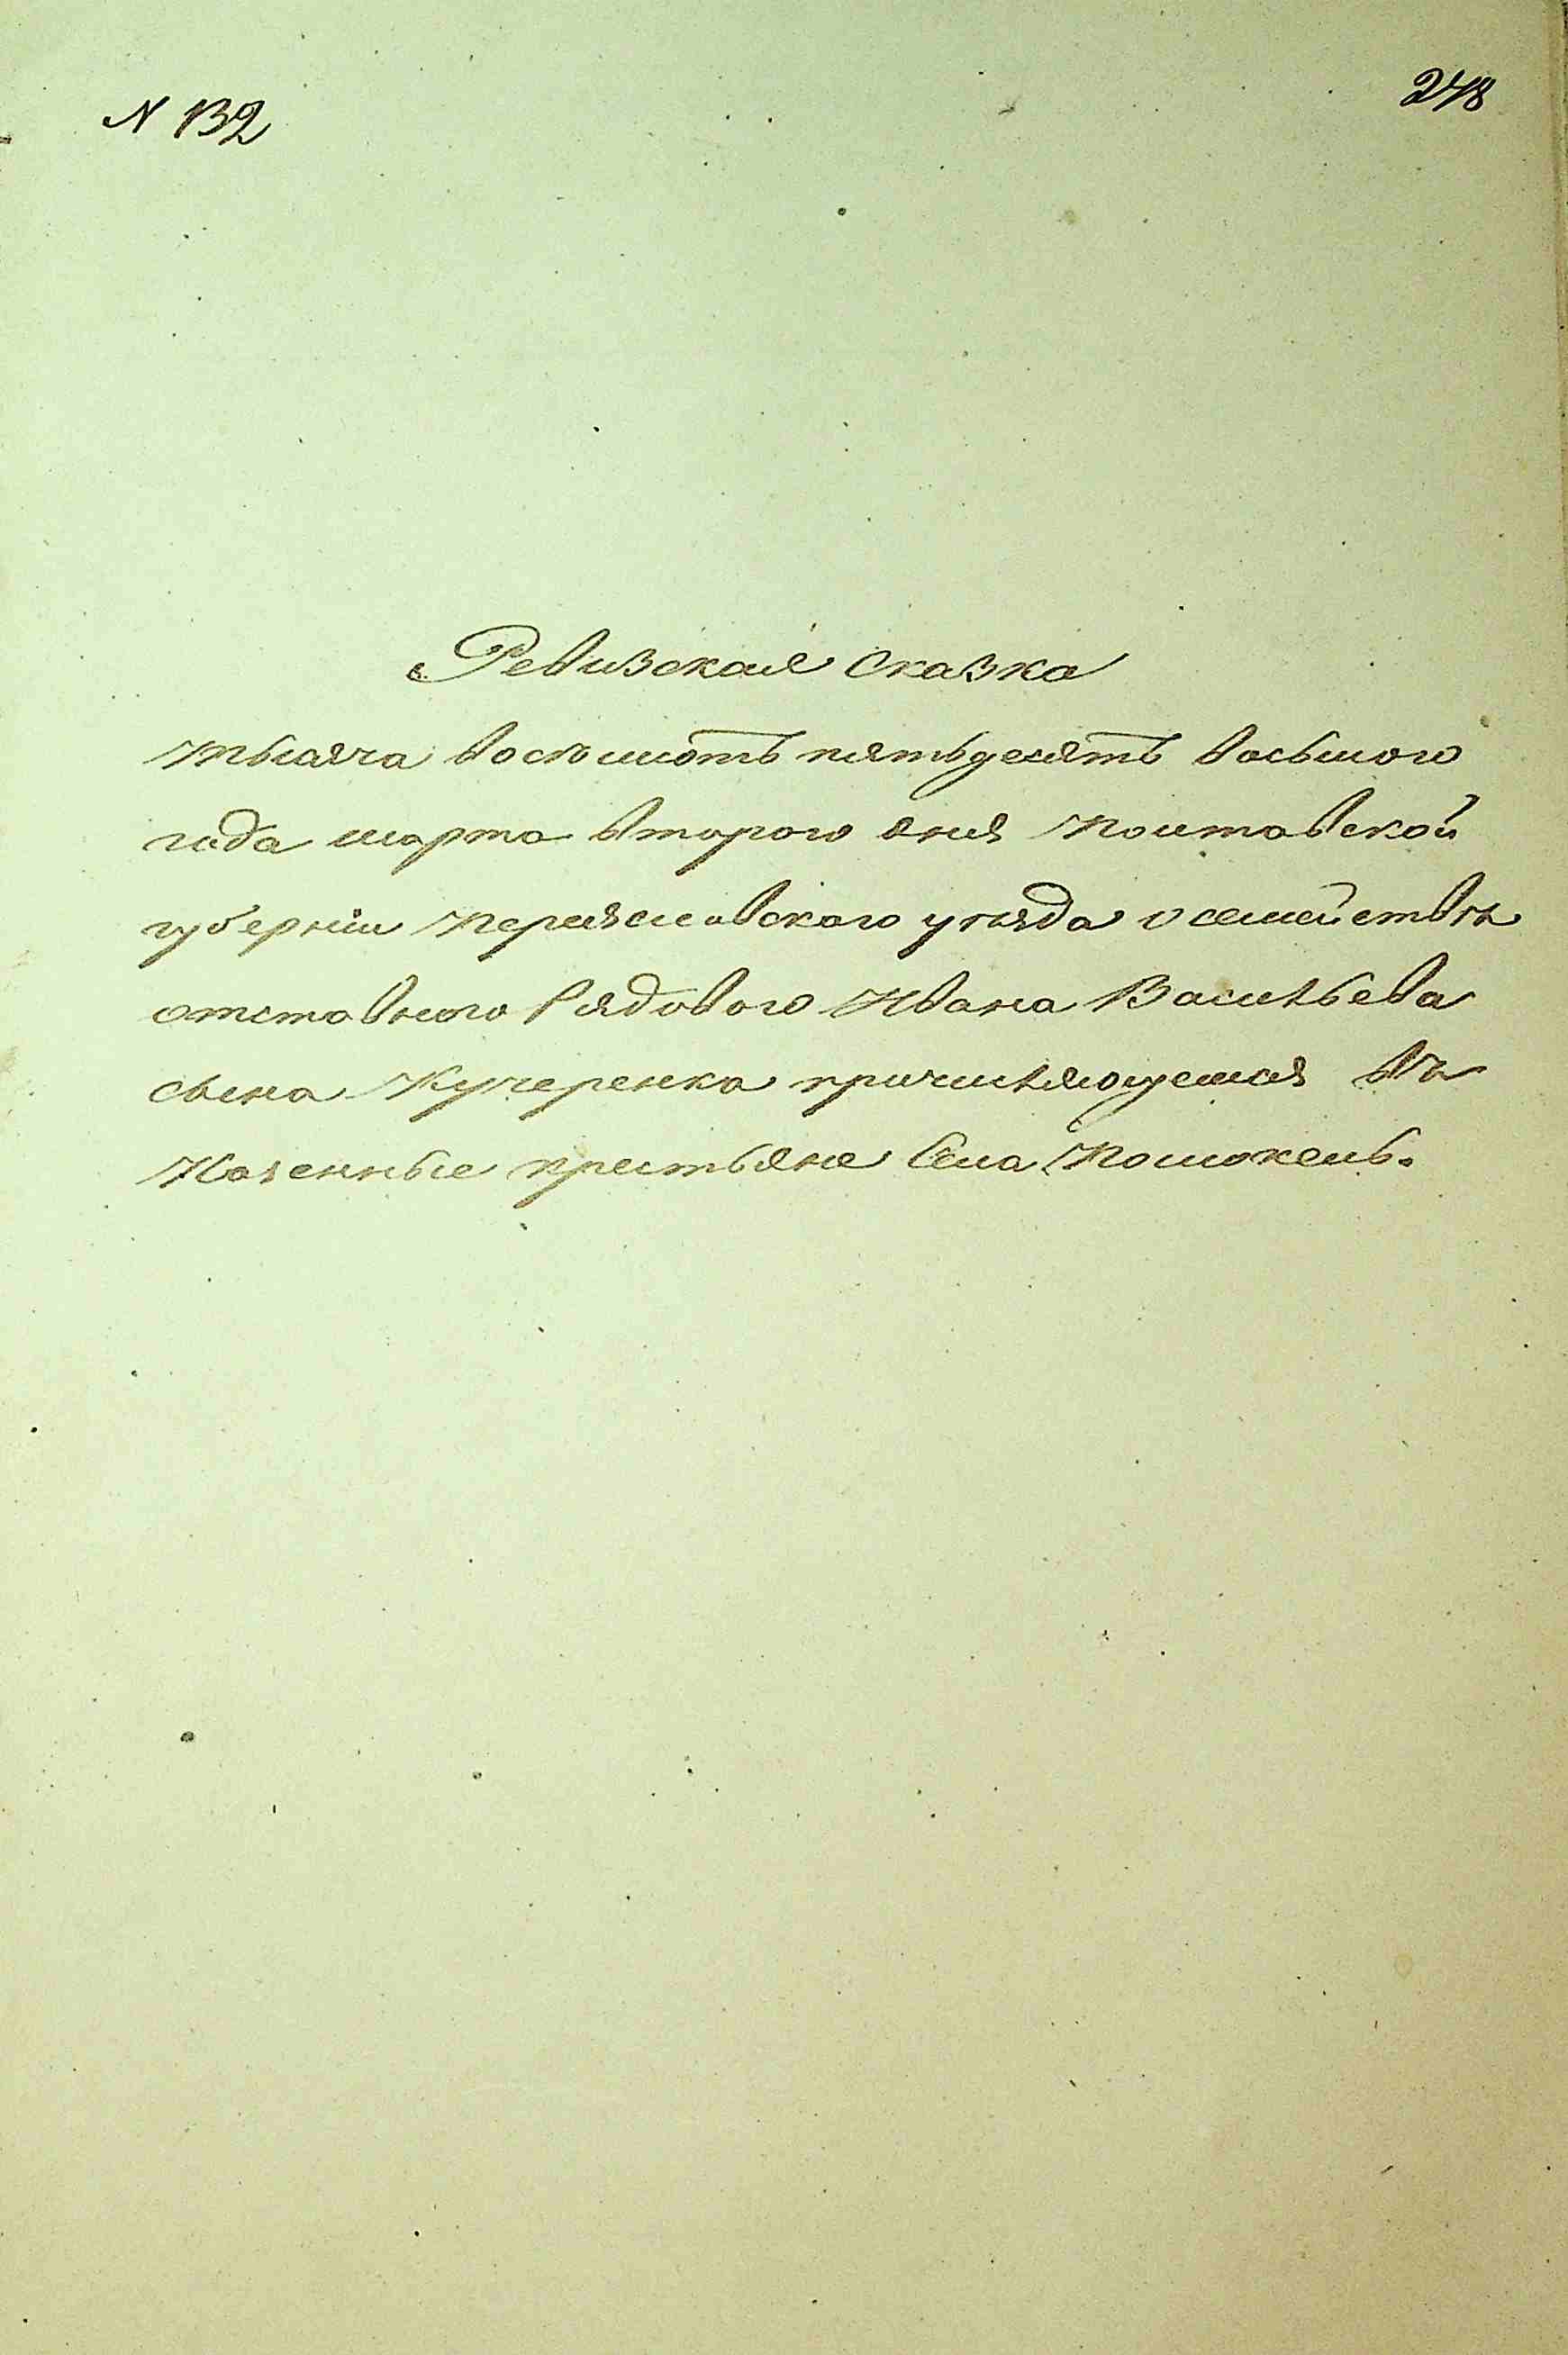 N 132
248
Ревизская сказка
тысяча восѣмьсотъ пятьдесятъ восьмого
года марта второго дня Полтавской
губерніи Переяславского уѣзда о семействѣ
отставного Рядового Ивана Васильева
сына Кучеренка причисляющемся въ
Казенные крестьяне Села Помоклень.